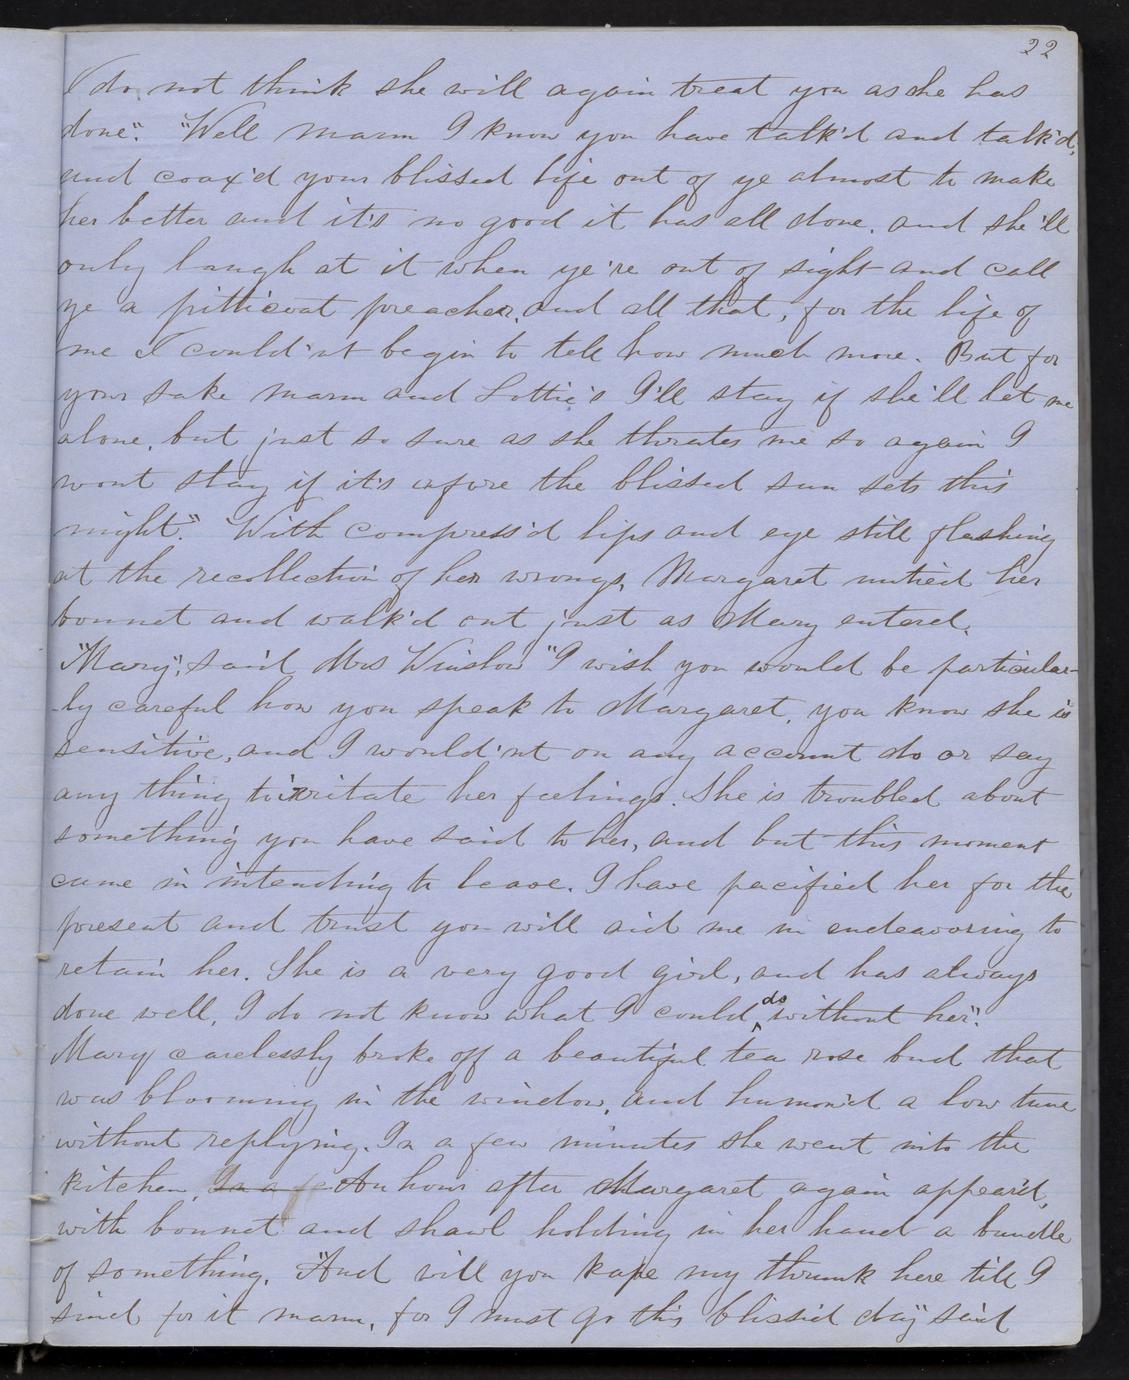 22
I do not think she will again treat you as she has
done". "Well marm I know you have talk'd and talk'd,
and coax'd your blissed life out of ye almost to make
her better and it's no good it has all done, and she'll
only laugh at it when ye're out of sight and call
ye a pitticoat preacher, and all that, for the life of
me I could'nt begin to tell how much more. But for
your sake marm and Lottie's I'll stay if she'll let me
alone, but just so sure as she thrates me so again I
wont stay if it's afore the blissed sun sets this
night." With compress'd lips and eye still flashing
at the recollection of her wrongs, Margaret untied her
bonnet and walk'd out just as Mary entered.
"Mary", said Mrs Winslow "I wish you would be particular-
-ly careful how you speak to Margaret, you know she is
sensitive, and I would'nt on any account do or say
any thing to irritate her feelings. She is troubled about
something you have said to her, and but this moment
came in intending to leave. I have pacified her for the
present and trust you will aid me in endeavoring to
retain her. She is a very good girl, and has always
done well, I do not know what I could do without her".
Mary carelessly broke off a beautiful tea rose bud that
was blooming in the window, and humm'd a low tune
without replying. In a few minutes she went into the
kitchen, In a fe An hour after Margaret again appear'd,
with bonnet and shawl holding in her hand a bundle
of something. "And will you kape my thrunk here till I
sind for it marm, for I must go this blissid day" said